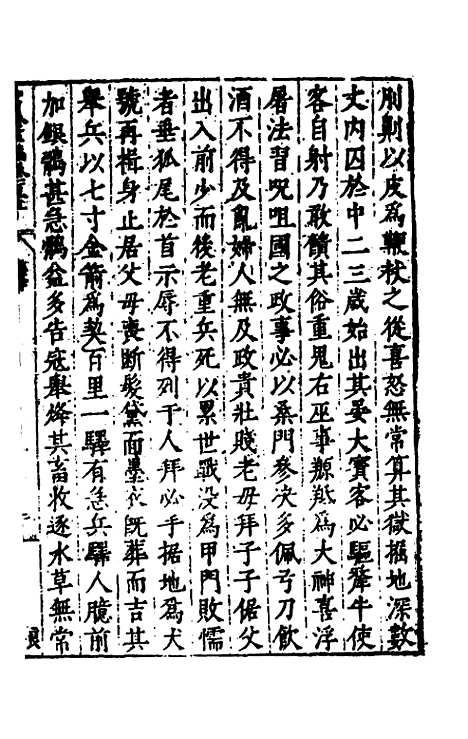 刖劓以皮為鞭抶之從喜怒無常算其獄掘地深數
丈内囚於中二三歲始出其宴大賓客必驅犛牛使
客自射乃敢饋其俗重鬼右巫事羱羝為大神喜浮
屠法習呪咀國之政事必以桑門參決多佩弓刀飲
酒不得及亂婦人無及政貴壯賤老母拜子子倨父
出入前少而後老重兵死以累世戰没為甲門敗懦
者垂狐尾於首示辱不得列于人拜必手据地為犬
號再揖身止居父母喪斷髮黛面墨衣既葬而吉其
舉兵以七寸金箭為契百里一驛有急兵驛人臆前
加銀鶻甚急鶻益多告寇舉烽其畜牧逐水草無常